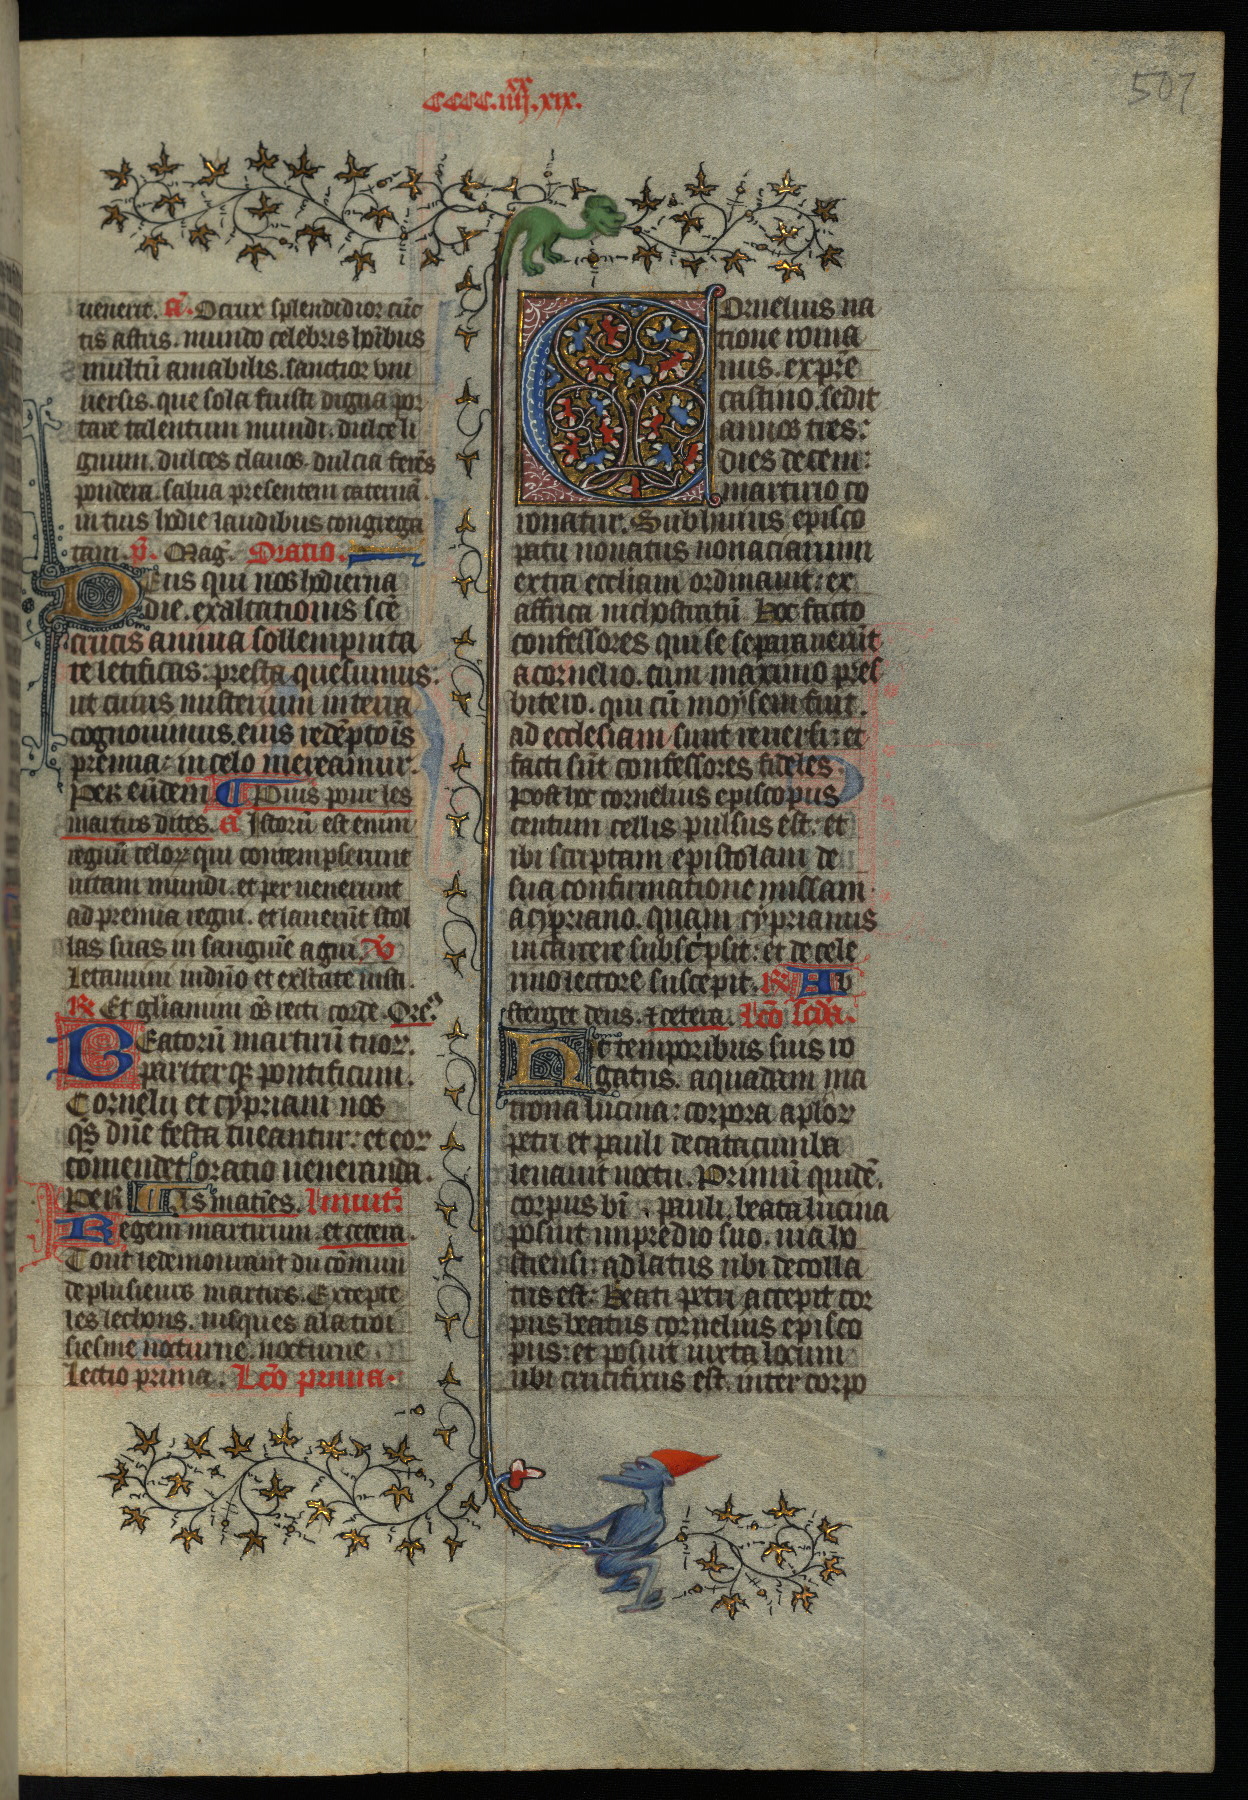 xx
CCCC.iiij.xix.
507
uenerit. a᷃. O crux splendidior cu᷃c
tis astris. mundo celebris ho᷃ibus
multu᷃ amabilis. sanctior vni
uersis. que sola fuisti digna por
tare talentum mundi. dulce li
gnum. dulces clauos. dulcia fere᷃s
pondera. salua presentem caterua᷃.
in tuis hodie laudibus congrega
tam. v᷃. Mag᷃. Oratio.
Deus qui nos hodierna
die. exaltationis sc᷃e
crucis annua sollempnita
te letificas: presta quesumus:
ut cuius misterium in terra
cognouimus. eius rede᷃ptio᷃is
premia: in celo mereamur.
Per eu᷃dem Puis pour les
martirs dites. a᷃ Istoru᷃ est enim
regnu᷃ celoꝝ qui contempserunt
uitam mundi. et per uenerunt
ad premia regni. et laueru᷃t stol
las suas in sangui᷃e agni. v᷃
Letamini in d᷃no et exltate iusti.
℟ Et gl᷃iamini o᷃s recti corde. Or᷃e.
Beatoru᷃ martiru᷃ tuoꝝ.
pariter q᷃ pontificum.
Cornelii et cypriani nos
q᷃s d᷃ne festa tueantur: et eoꝝ
comendet oratio ueneranda.
Per as matines. Inuit᷃.
Regem martirum. et cetera.
Tout le demourant du co᷃mun
de plusieurs martirs. Excepte
les lechons. iusques a la troi
siesme nocturne. nocturne.
lectio prima: L᷃co prima.
Cornelius na
tione roma
nus. ex pre᷃
castino. sedit
annos tres:
dies decem:
martirio co
ronatur. Sub huius episco
patu nouatus nouacianum
extra eccl᷃iam ordinauit: ex
affrica nichostratu᷃. Hoc facto
confessores qui se separaueru᷃t
a cornelio. cum maximo pres
bitero. qui cu᷃ moysem fuit.
ad ecclesiam sunt reuersi: et
facti su᷃t confessores fideles.
Post hoc cornelius episcopus
centum cellis pulsus est: et
ibi scriptam epistolam de
sua confirmatione missam
a cypriano. quam cyprianus
in carcere subscripsit: et de cele
rino lectore suscepit. ℟ Ab
sterget deus. et cetera. L᷃co sc᷃da.
Hic temporibus suis ro
gatus. a quadam ma
trona lucina: corpora ap᷃loꝝ
petri et pauli de catacumba
leuauit noctu. Primu᷃ quide᷃.
corpus b᷃i. pauli. beata lucina
posuit in predio suo. uia ho
stiensi: ad latus ubi decolla
tus est. Beati petri accepit cor
pus beatus cornelius episco
pus: et posuit iuxta locum
ubi crucifixus est. inter corpo